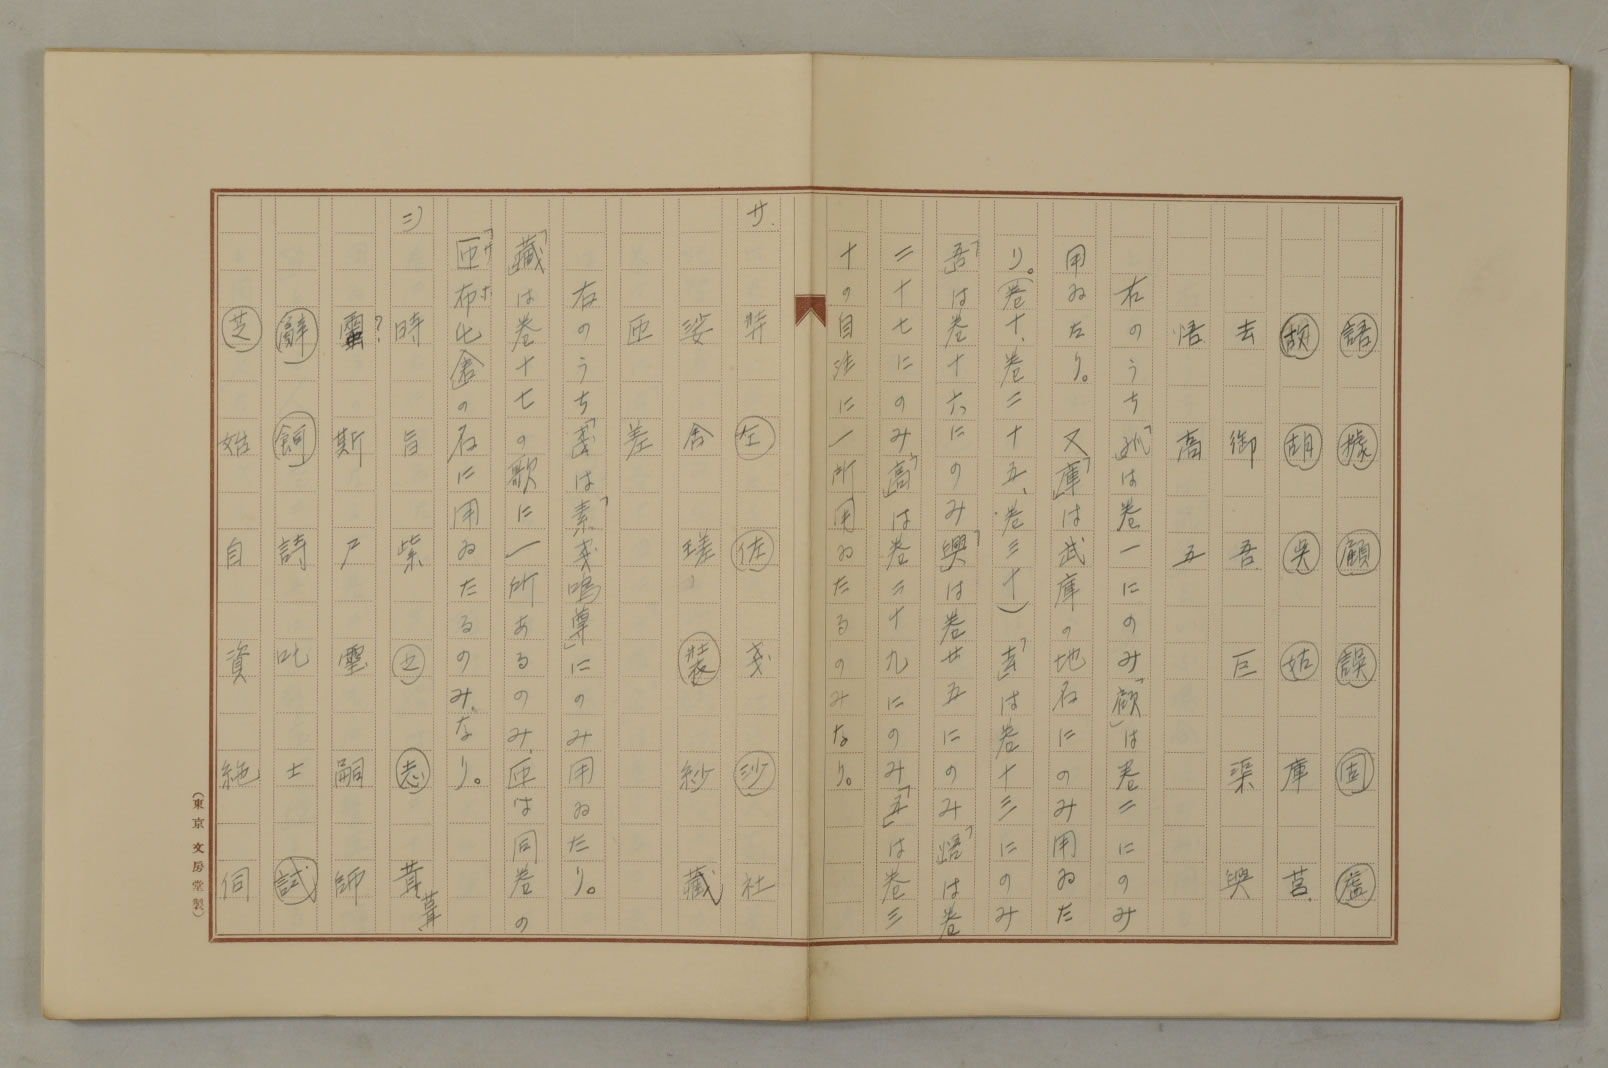 語 據 顧 誤 固 虛
故 胡 吳 姑 庫 莒
去 御 吾 巨 渠 興
悟 高 五
右のうち「」は卷一にのみ「顧」は卷二にのみ
用ゐたり。又「庫」は武庫の地名にのみ用ゐた
り。(卷十、卷二十五、卷三十)「去」は卷十三にのみ
「吾」は卷十六にのみ「興」は卷廿五にのみ「悟」は卷
二十七にのみ「高」は卷二十九にのみ「五」は卷三
十の自注に一所用ゐたるのみなり。
サ. 左 佐 沙 社
娑 舍 瑳 裝 紗 藏
匝 差
右のうち「」は「素戔嗚尊」にのみ用ゐたり。
「藏」は卷十七の歌に一所あるのみ、匝は同卷の
「匝布屯倉の名に用ゐたるのみなり。
サホ
ニ) 時 旨 紫 之 志 茸 葺
? 斯 尸 嗣 師
辭 飼 詩 叱 士 試
芝 始 自 資 絁 伺
(東京 文房堂製)